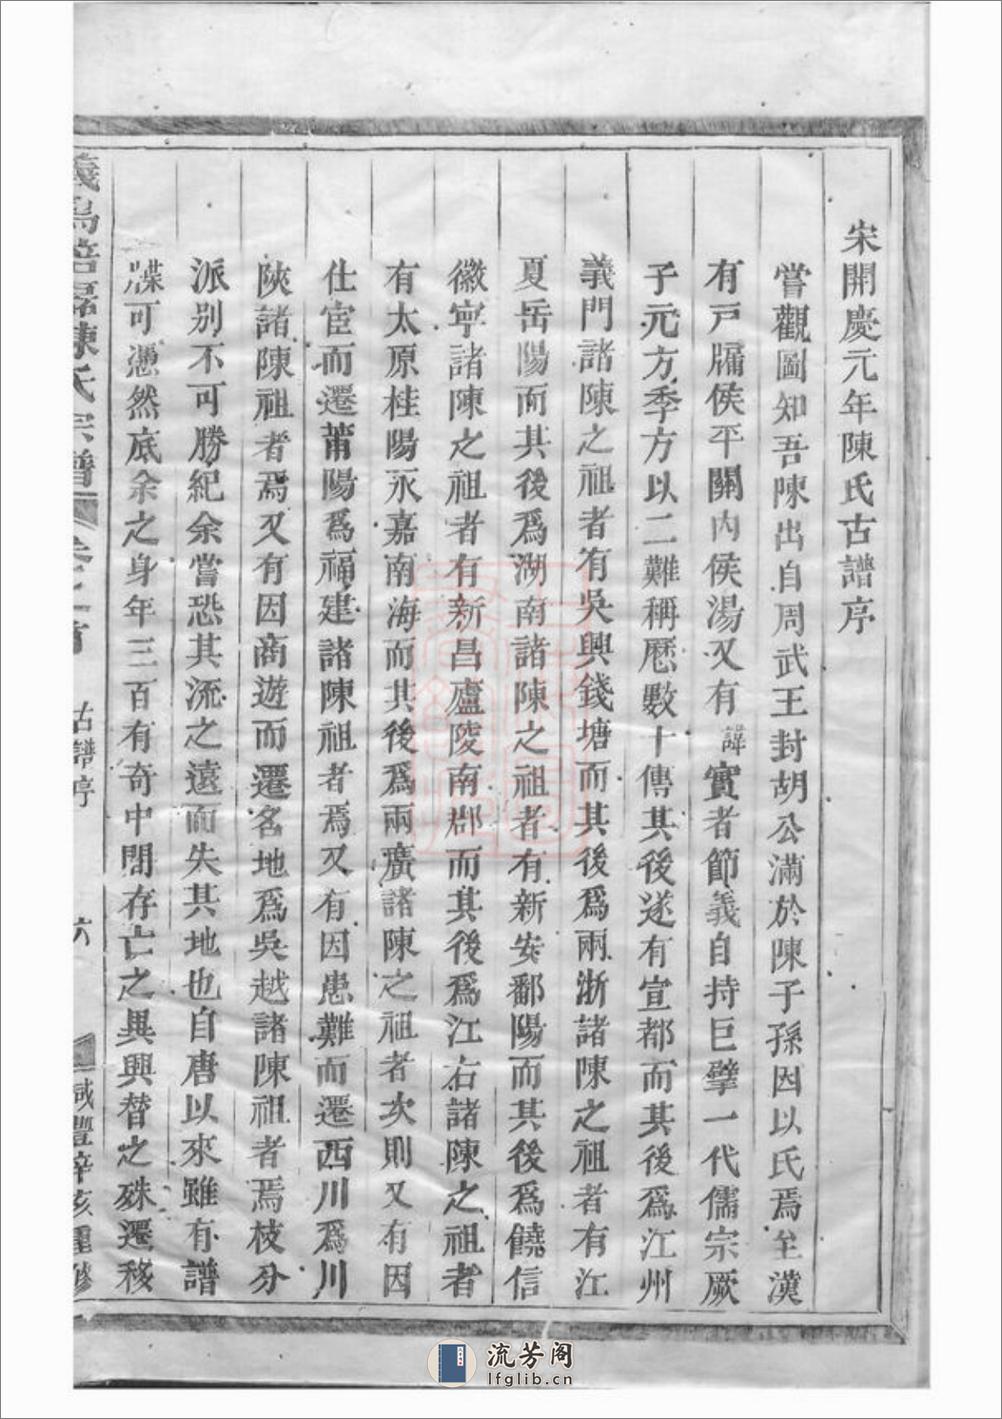 宋開慶元年陳氏古譜序
嘗觀圖知吾陳出自周武王封胡公滿於陳子孫因以氏焉至漢
有戸牖侯平關内侯湯又有諱實者節義自持巨擘一代儒宗厥
子元方季方以二難稱厯數十傳其後遂有宣都而其後爲江州
義門諸陳之祖者有吳興錢塘而其後爲兩浙諸陳之祖者有江
夏岳陽而其後爲湖南諸陳之祖者有新安鄱陽而其後爲饒信
徽寧諸陳之祖者有新昌廬陵南郡而其後爲江右諸陳之祖者
有太原桂陽永嘉南海而其後爲兩廣諸陳之祖者次則又有因
仕宦而遷莆陽爲福建諸陳祖者焉又有因患難而遷西川爲川
陝諸陳祖者焉又有因商遊而遷名地爲吳越諸陳祖者焉枝分
派别不可勝紀余嘗恐其流之遠而失其地也自唐以來雖有譜
牒可憑然底余之身年三百有奇中間存亡之異興替之殊遷移
義烏陳氏宗譜 卷之首 古譜序 六 咸豐辛亥重修
流芳阁
lfglib.cn